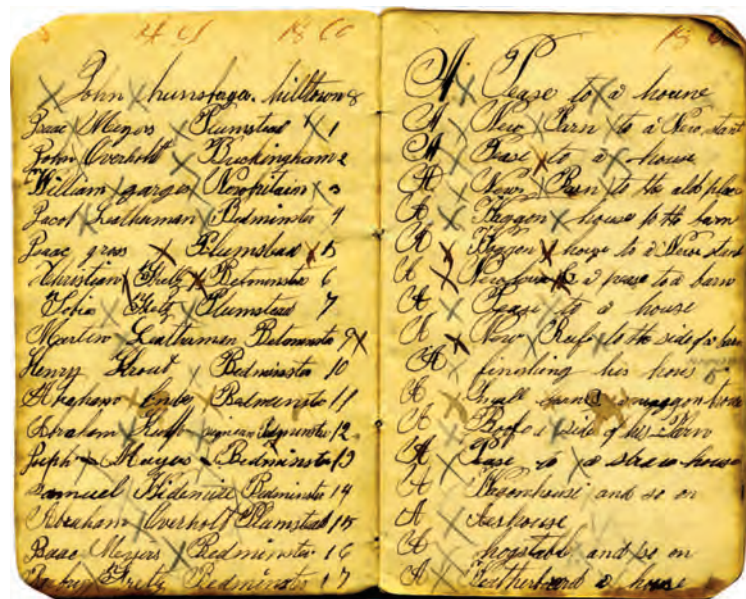 18 60
John hunsberger hilltown 8
Isaac Meyers Plumstead 1
John Overholt Buckingham 2
William garges Newbritain 3
Jacob Leatherman Bedminster 4
Isaac gross Plumstead 5
Christian Fretz Betminster 6
Tobia Fretz Plumstead 7
Martin Leatherman Betminster 9
Henry Krout Bedminster 10
Abraham Bedminster 11
Abraham 12
Joseph Meyers Bedminster 13
Samuel Bedminster 14
Abraham Overholt Plumstead 15
Isaac Meyers Bedminster 16
Fretz Bedminster 17
18
A Pease to a house
A New Barn to a New stand
A Pease to a house
A New Barn to the old place
A Waggon house to the barn
A Waggon house to a New stand
A New a pease to a barn
A Pease to a house
A New Rufe to the side of a barn
A finishing his house
A Small
A Roofe side of his Barn
A Pease to a straw house
A Wagonhouse and so on
A
A hogstable and so on
A Weatherboard a house